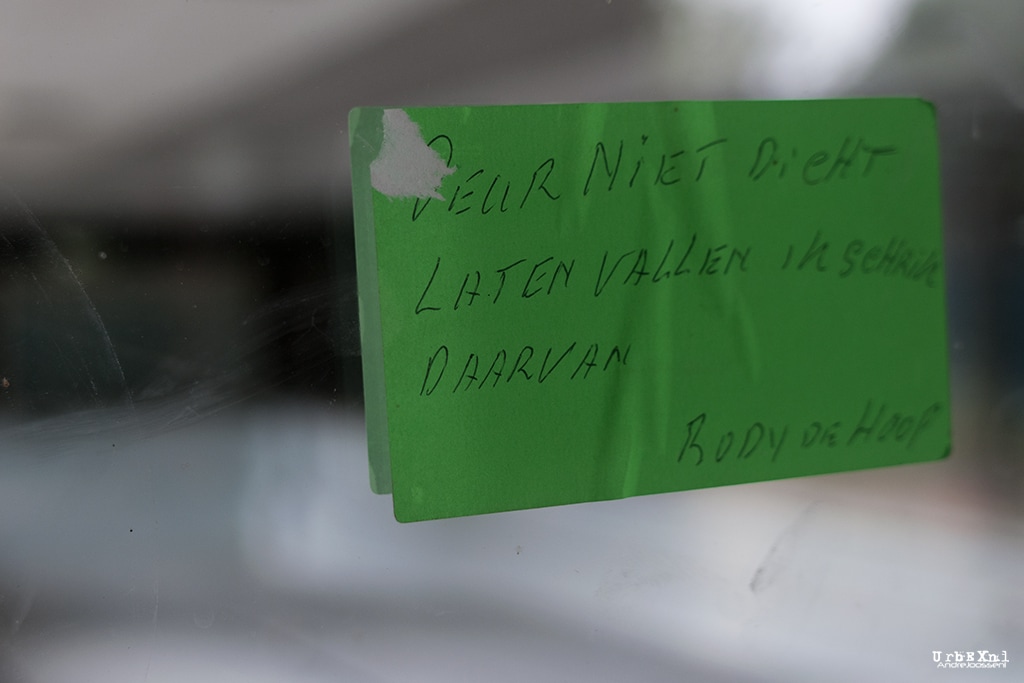 DEUR NIET DICHT
LATEN VALLEN IK SCHRIK
DAARVAN
RODY DE HOOP
UrbEXnl
AndreJoosseni